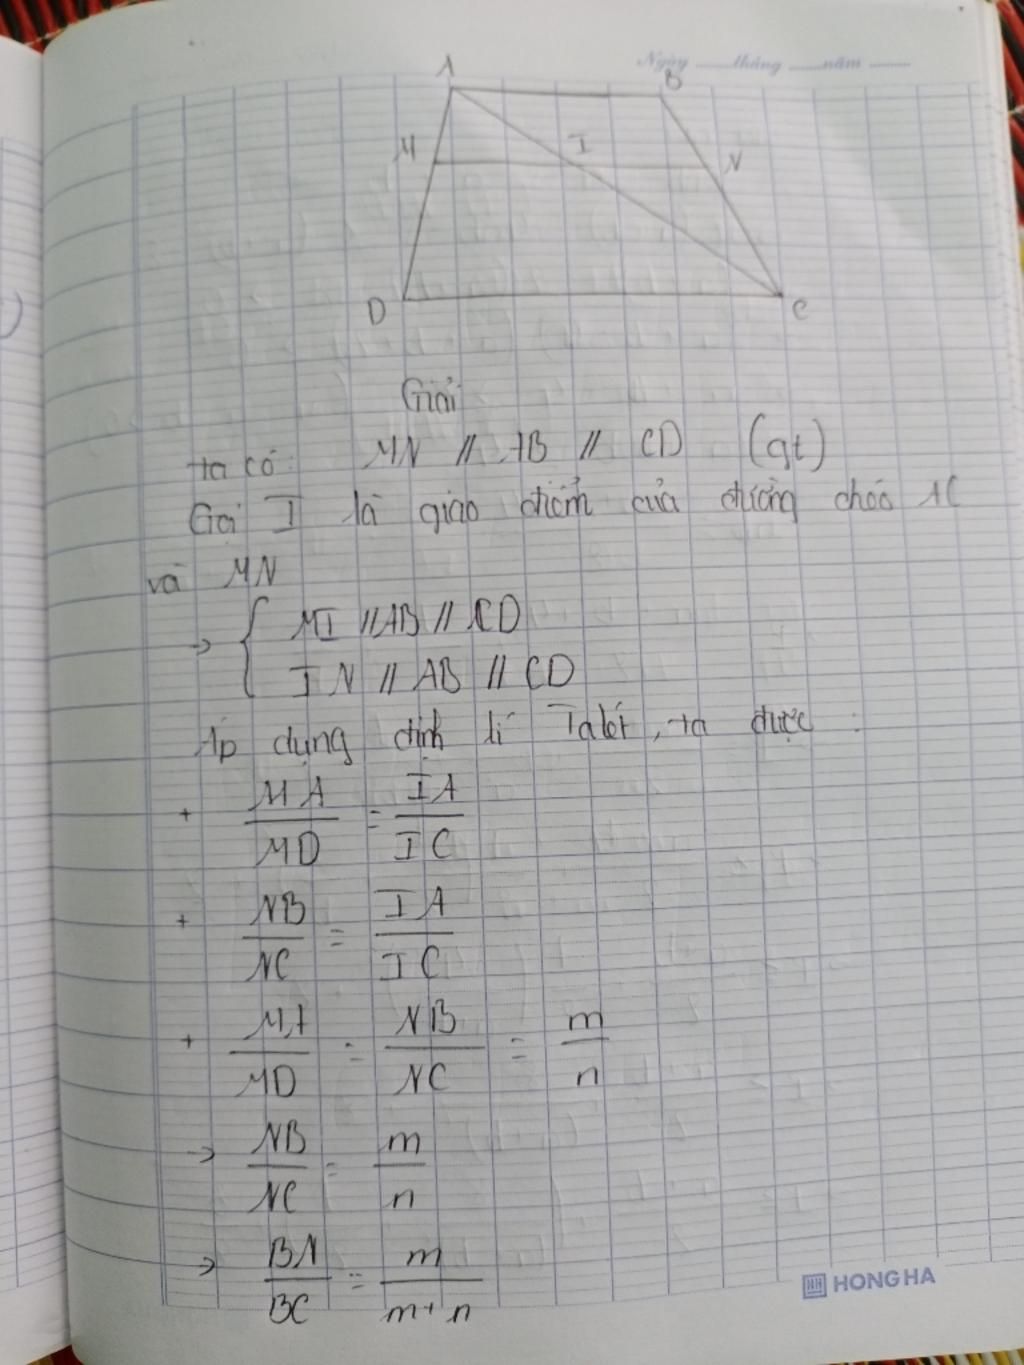 Ngày tháng năm
A
B
M
I
N
D
C
Giải
ta có: MN // AB // CD (gt)
Gọi I là giao điểm của đường chéo AC
và MN
→ { MI // AB // CD
IN // AB // CD
Áp dụng định lí Talét, ta được:
+ MA/MD = IA/IC
+ NB/NC = IA/IC
+ MA/MD = NB/NC = m/n
→ NB/NC = m/n
→ BN/BC = m/m+n
HH HONG HA